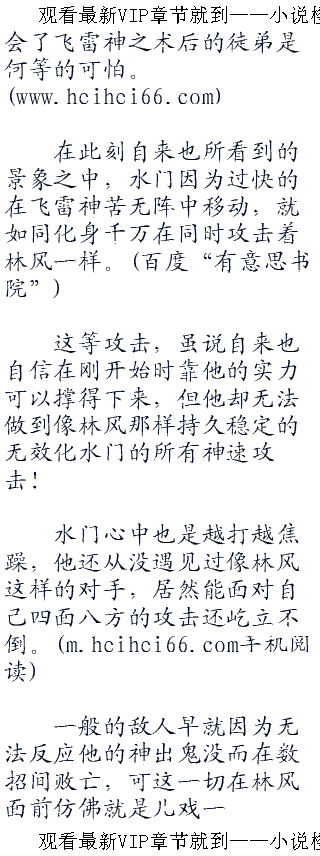 观看最新VIP章节就到——小说
会了飞雷神之术后的徒弟是
何等的可怕。
(www.hcihci66.com)
在此刻自来也所看到的
景象之中，水门因为过快的
在飞雷神苦无阵中移动，就
如同化身千万在同时攻击着
林风一样。(百度“有意思书
院”)
这等攻击，虽说自来也
自信在刚开始时靠他的实力
可以撑得下来，但他却无法
做到像林风那样持久稳定的
无效化水门的所有神速攻
击！
水门心中也是越打越焦
躁，他还从没遇见过像林风
这样的对手，居然能面对自
己四面八方的攻击还屹立不
倒。(m.hcihci66.com手机阅
读)
一般的敌人早就因为无
法反应他的神出鬼没而在数
招间败亡，可这一切在林风
面前仿佛就是儿戏一
观看最新VIP章节就到——小说